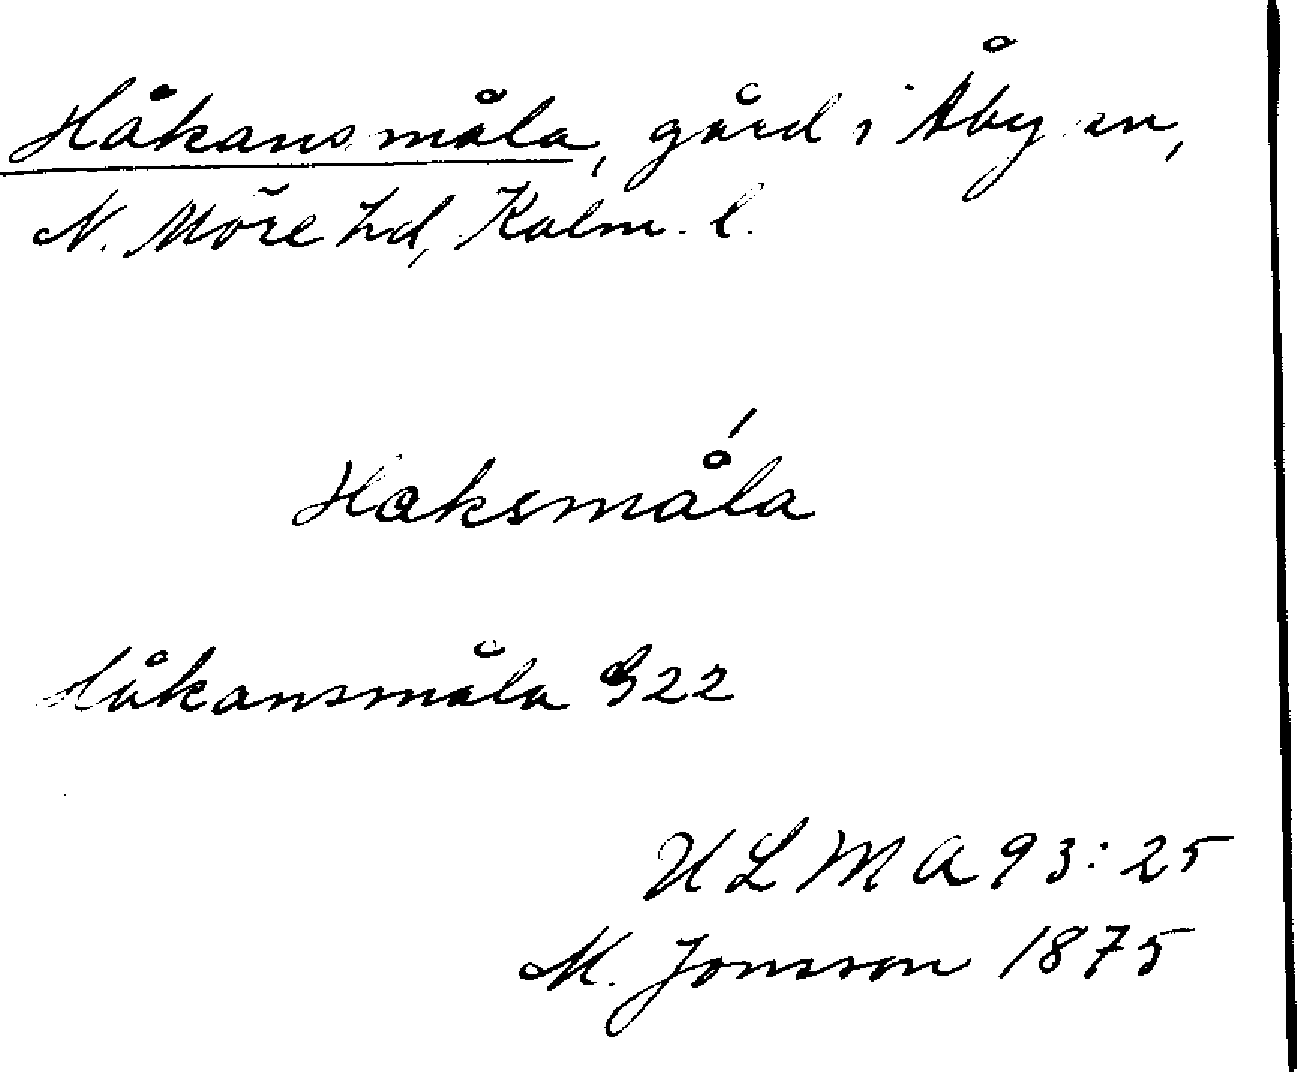 Håkansmåla, gård i Åby sn,
N. Möre hd, Kalm. l.
Haksmǻla
Håkansmåla G22
ULMA 93:25
M. Jonsson 1875